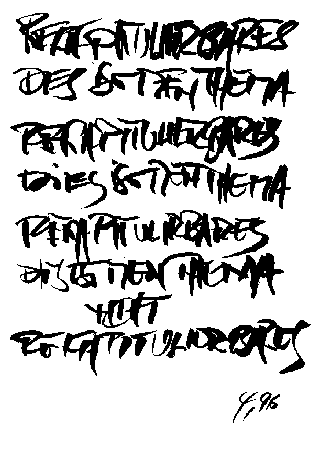 REKAPITULIERBARES
DIES IST EIN THEMA
REKAPITULIERBARES
DIES IST EIN THEMA
REKAPITULIERBARES
DIES IST EIN THEMA
REKAPITULIERBARES